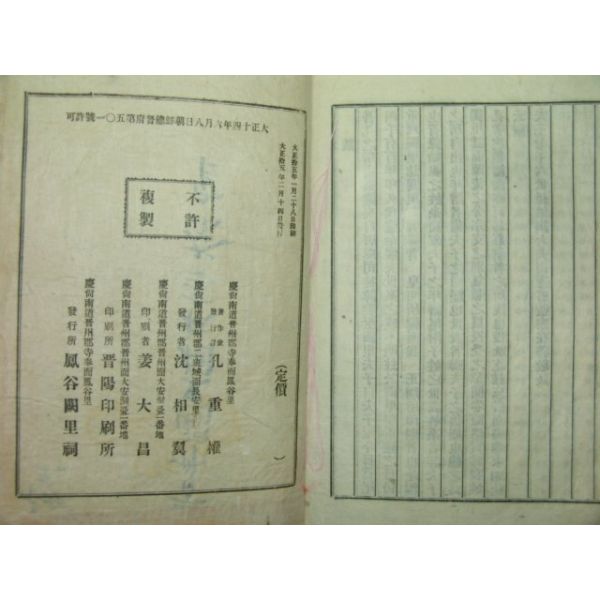 大正十四年六月八日朝鮮總督府第五〇一號許可
大正拾五年一月二十八日印刷
大正拾五年二月十四日發行
不許
複製
(定價 )
慶尙南道晋州郡寺奉面鳳谷里
孔重權
慶尙南道晋州郡二班城面長安里
發行者 沈相翼
慶尙南道晋州郡晋州面大安洞一番地
印刷者 姜大昌
慶尙南道晋州郡晋州面大安洞一番地
印刷所 晋陽印刷所
慶尙南道晋州郡寺奉面鳳谷里
發行所 鳳谷闕里祠